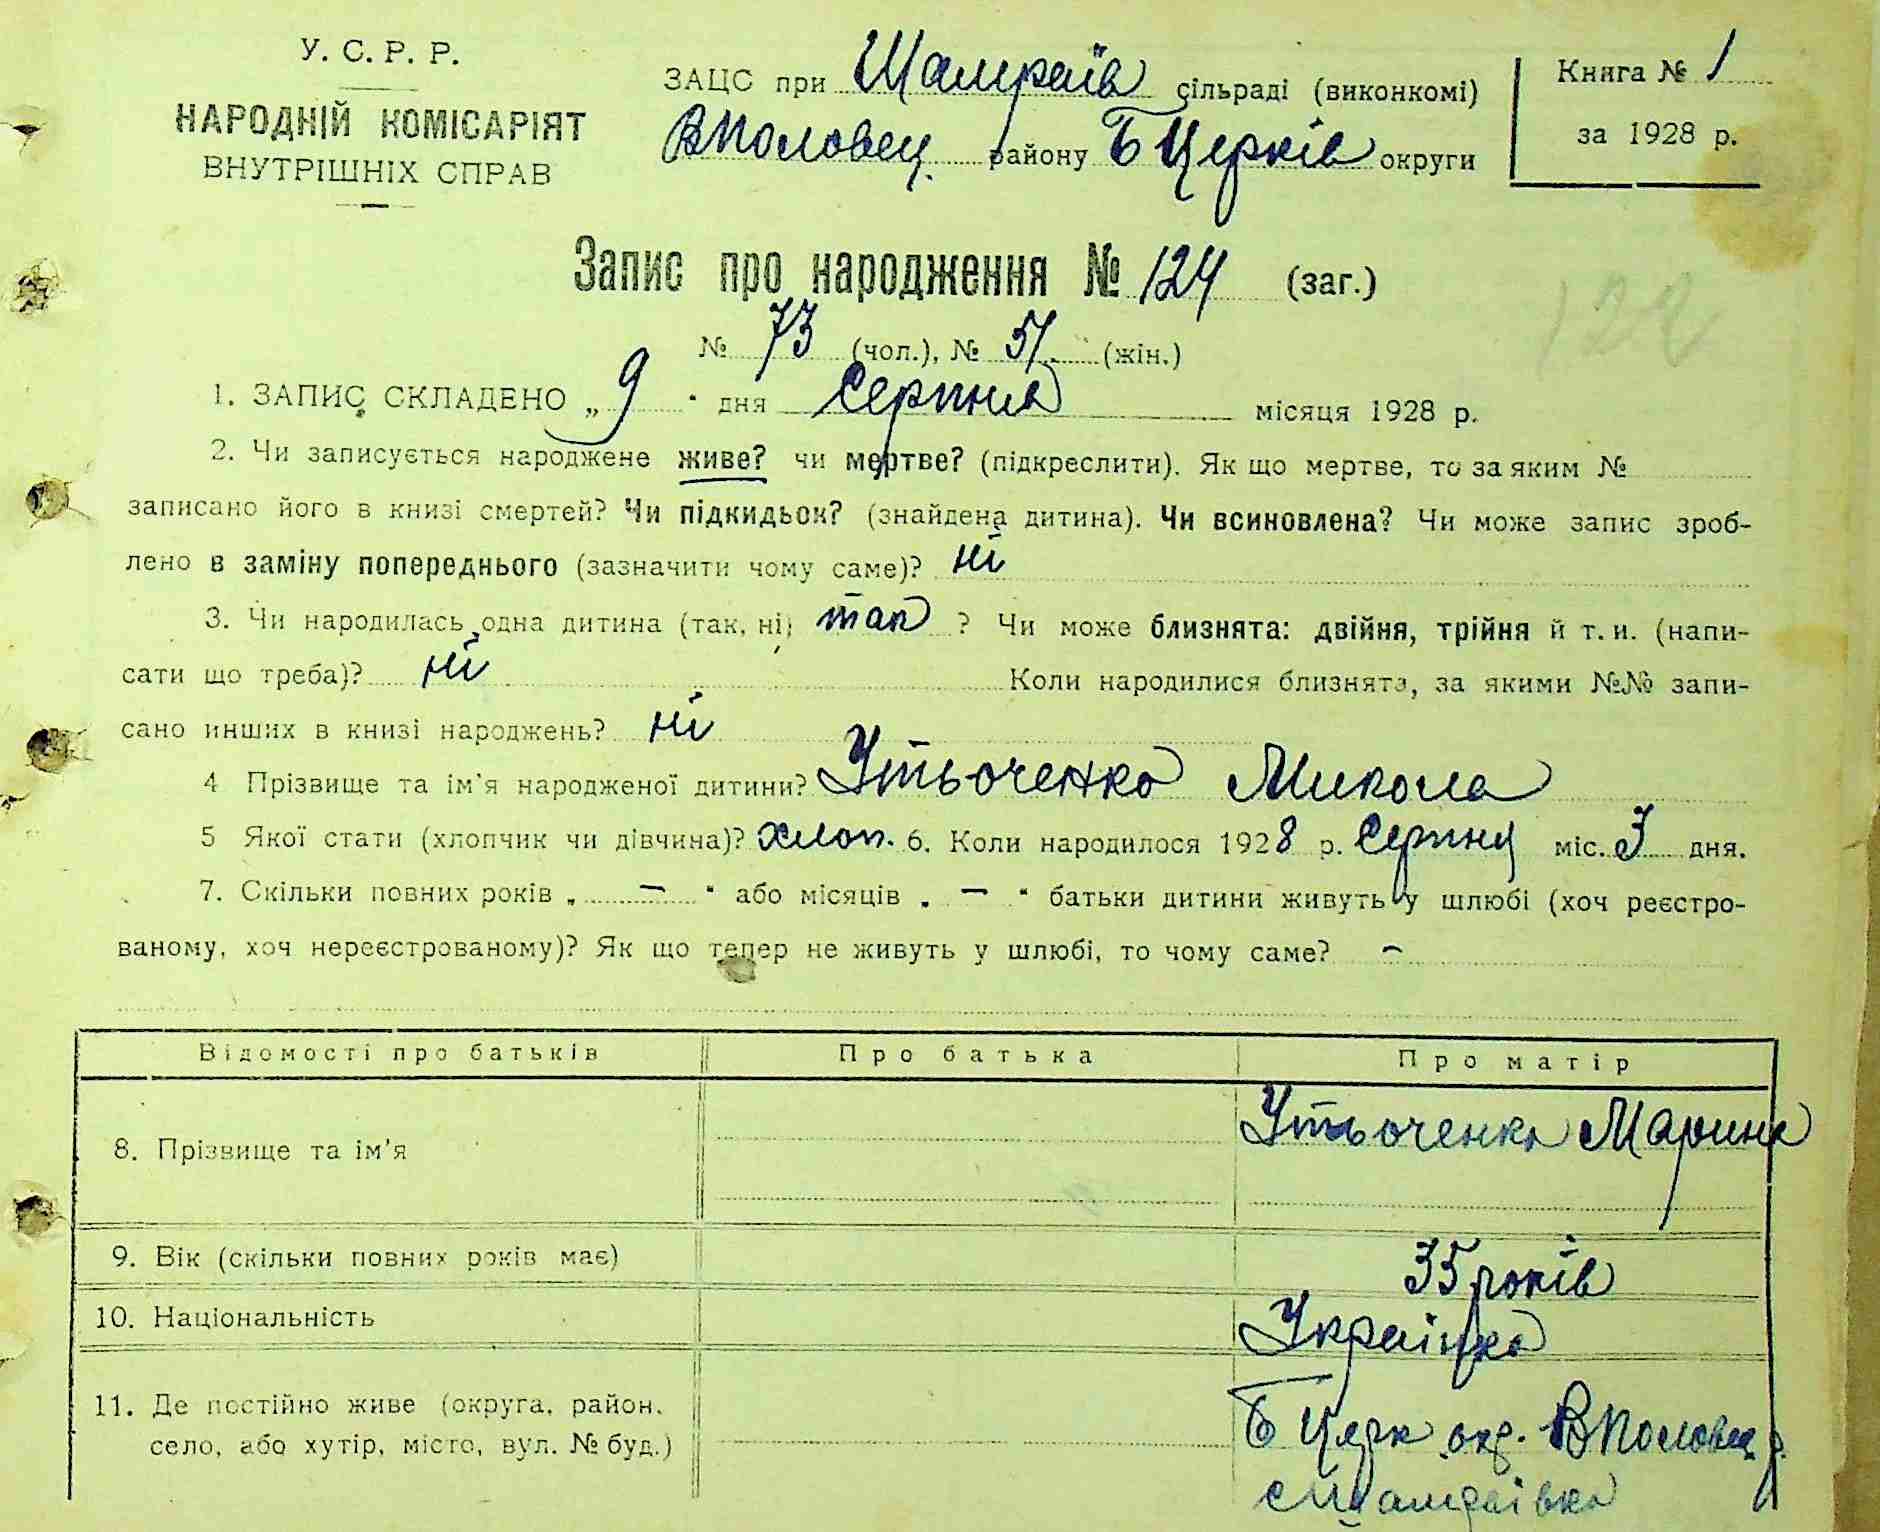 У. С. Р. Р.
НАРОДНІЙ КОМІСАРІЯТ
ВНУТРІШНІХ СПРАВ
ЗАЦС при Шамраїв сільраді (виконкомі)
ВПоловец. району БЦерків округи
Книга № 1
за 1928 р.
Запис про народження № 124 (заг.)
122
№ 73 (чол.), № 51 (жін.)
1. ЗАПИС СКЛАДЕНО „ 9 “ дня Серпня місяця 1928 р.
2. Чи записується народжене живе? чи мертве? (підкреслити). Як що мертве, то за яким №
записано його в книзі смертей? Чи підкидьок? (знайдена дитина). Чи всиновлена? Чи може запис зроб-
лено в заміну попереднього (зазначити чому саме)? ні
3. Чи народилась одна дитина (так, ні) так ? Чи може близнята: двійня, трійня й т. и. (напи-
сати що треба)? ні Коли народилися близнята, за якими №№ запи-
сано инших в книзі народжень? ні
4 Прізвище та ім'я народженої дитини? Утьоченко Микола
5 Якої стати (хлопчик чи дівчина)? хлоп. 6. Коли народилося 1928 р. Серпня міс. 3 дня.
7. Скільки повних років „ — “ або місяців „ — “ батьки дитини живуть у шлюбі (хоч реєстро-
ваному, хоч нереєстрованому)? Як що тепер не живуть у шлюбі, то чому саме? —
Відомості про батьків Про батька Про матір
8. Прізвище та ім'я Утьоченко Марина
9. Вік (скільки повних років має) 35 років
10. Національність Українка
11. Де постійно живе (округа, район, Б Церк окр. ВПоловец р.
село, або хутір, місто, вул. № буд.) с Шамраївка